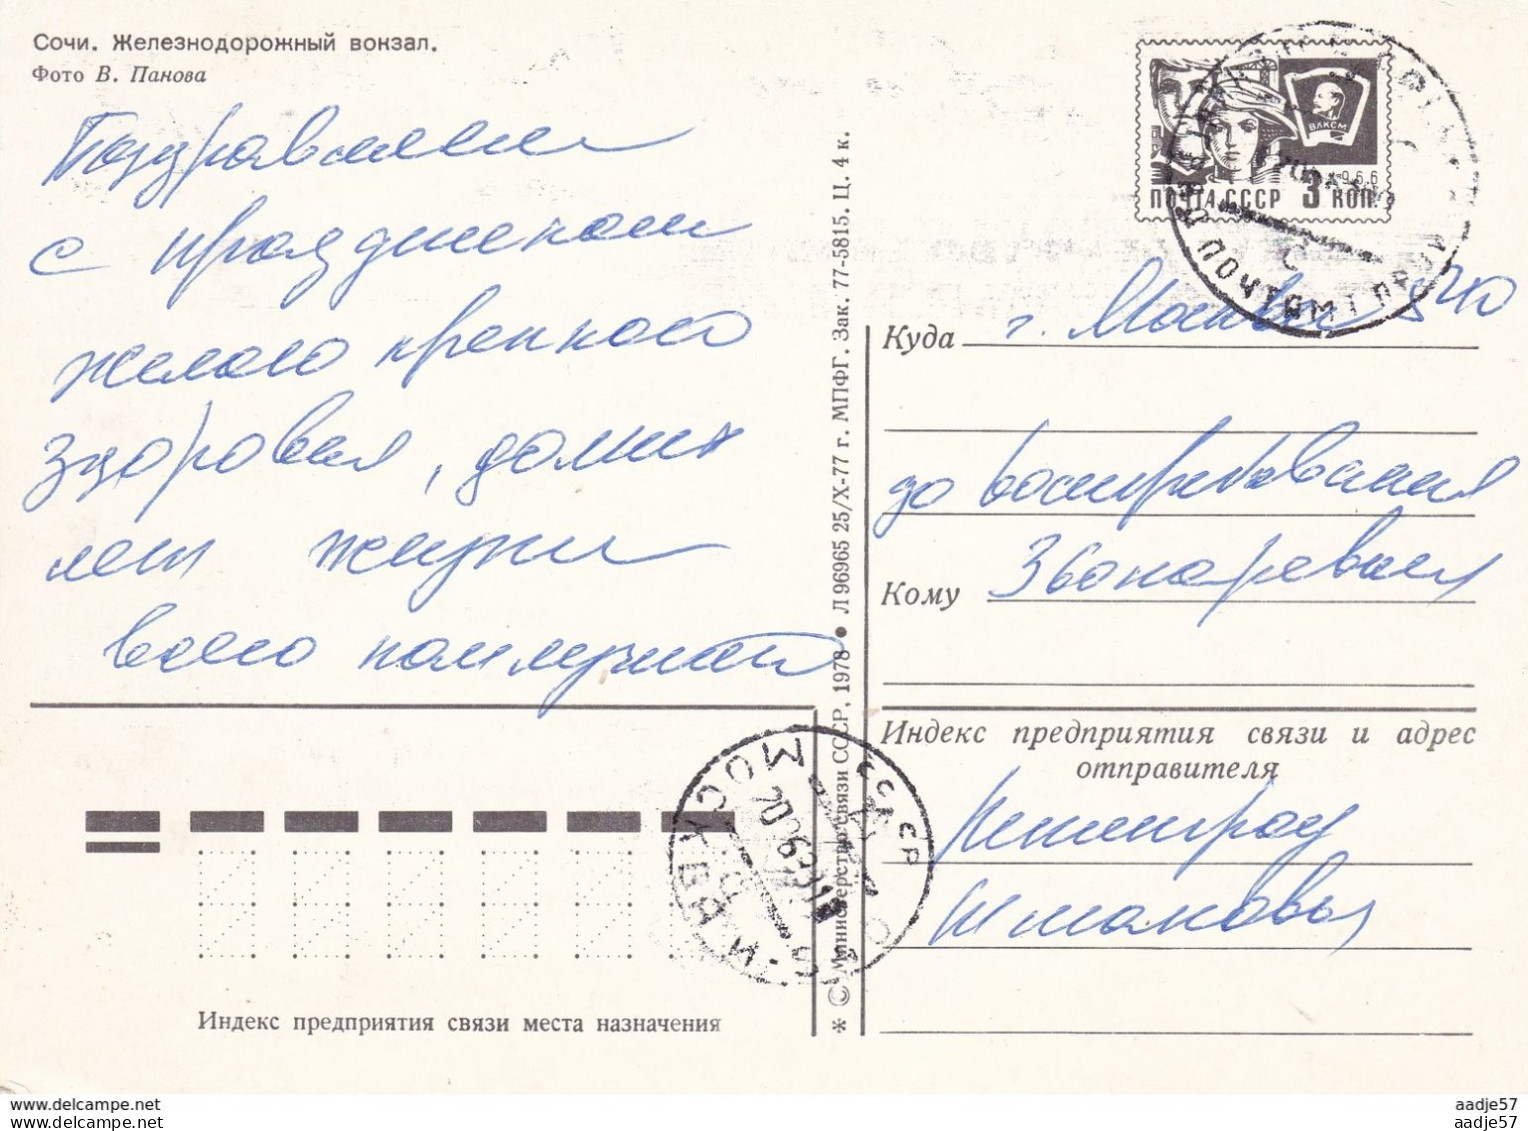 Сочи. Железнодорожный вокзал.
Фото В. Панова
Поздравляем
с праздником
желаю крепкого
здоровья, долгих
лет жизни
всего наилучшего
ВЛКСМ
1966
ПОЧТА СССР 3 КОП
ПОЧТАМТ
* © Министерство связи СССР, 1978 • Л 96965 25/X-77 г. МПФГ. Зак. 77-5815. Ц. 4 к.
Куда г. Москва
до востребования
Кому Звонаревая
Индекс предприятия связи и адрес
отправителя
Ленинград
МОСКВА
СССР
Индекс предприятия связи места назначения
aadje57
aadje57